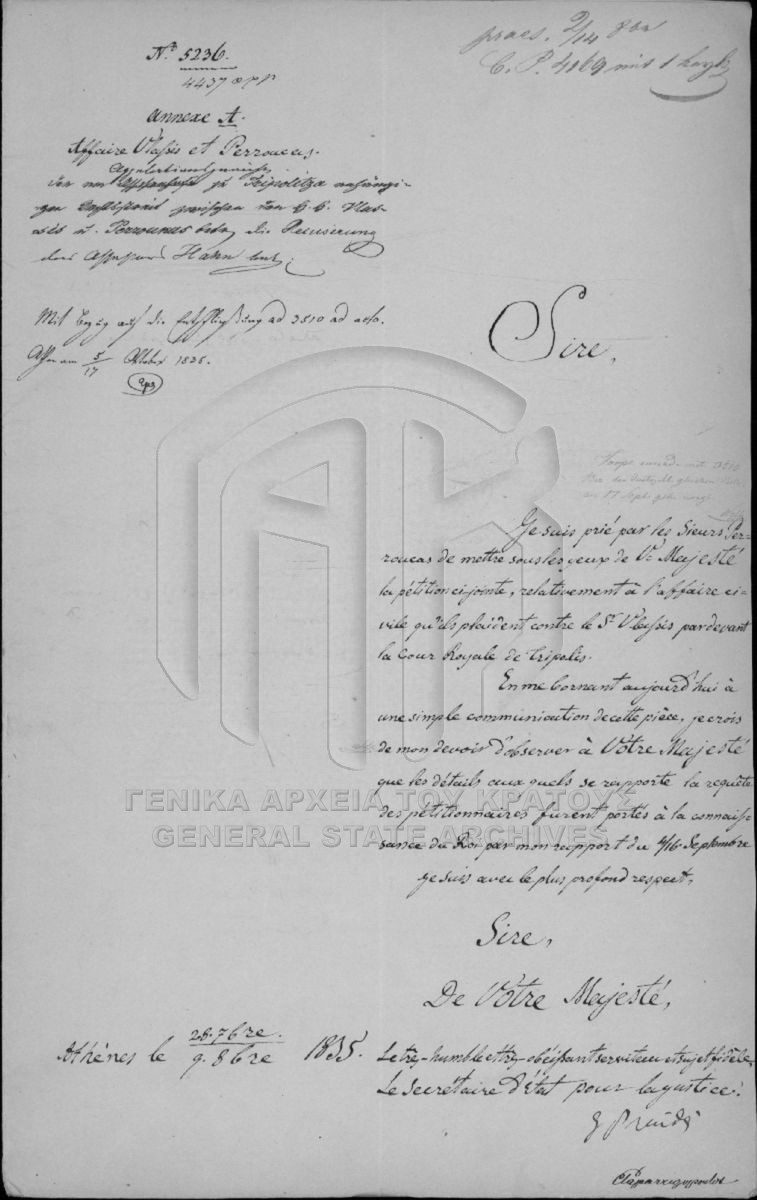 praes. 2/14 8br
C. P. 4169 mit 1
No. 5236.
4437
Annexe A.
Affaire Vlassis et Perroucas.
Appelationsgerichte
zu Tripolitza anhängi-
gen zwischen den H. H. Vlas-
sis u. Perroucas betr. die Recusirung
des Assessors Hahn betr.
Mit Bezug auf die Entschließung ad 3510 ad acta.
Athen am 5/17 Oktober 1835.
Sire,
ad 3510
17 Sept.
Je suis prié par les Sieurs Per-
roucas de mettre sous les yeux de Ve. Majesté
la pétition ci-jointe, relativement à l'affaire ci-
vile qu'ils plaident contre le Sr. Vlassis pardevant
la Cour Royale de Tripolis.
En me bornant aujourd'hui à
une simple communication de cette pièce, je crois
de mon devoir d'observer à Votre Majesté
que les détails aux quels se rapporte la requête
des pétitionnaires furent portés à la connais-
sance du Roi par mon rapport du 4/16 Septembre
je suis avec le plus profond respect,
Sire,
De Votre Majesté,
Athènes le 28. 7bre. / 9. 8bre 1835.
Le très-humble et très-obéissant serviteur et sujet fidèle,
Le Secrétaire d'État pour la justice.
G Praidis
ΓΕΝΙΚΑ ΑΡΧΕΙΑ ΤΟΥ ΚΡΑΤΟΥΣ
GENERAL STATE ARCHIVES